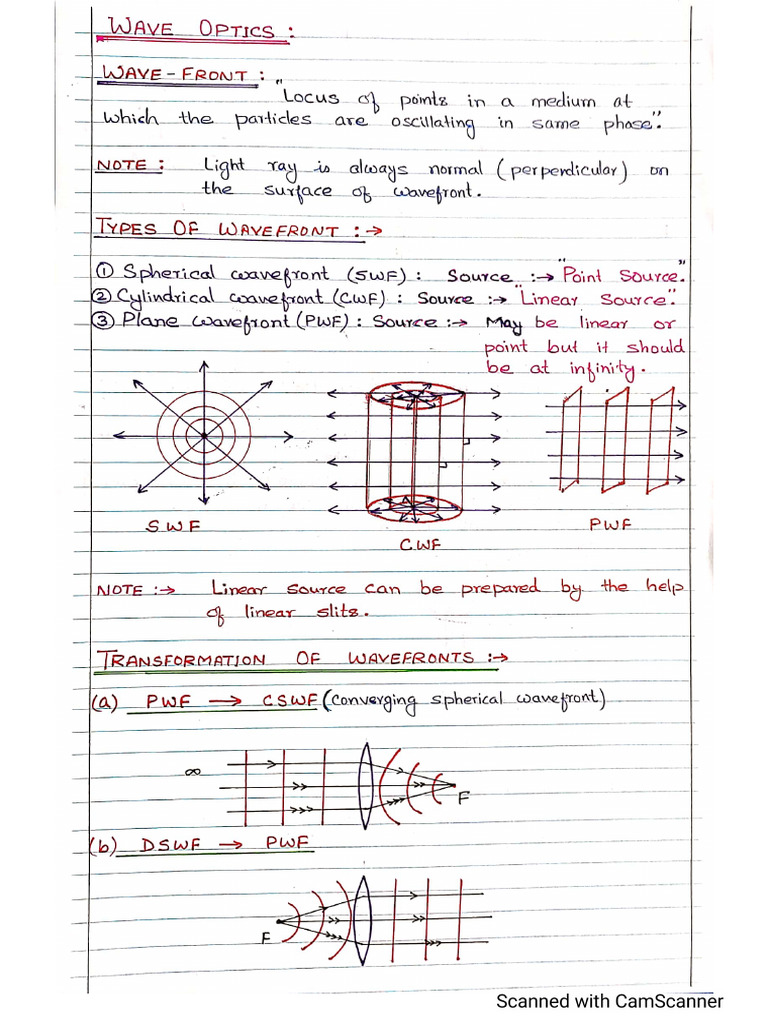 WAVE OPTICS :
WAVE-FRONT :
"Locus of points in a medium at
which the particles are oscillating in same phase".
NOTE : Light ray is always normal (perpendicular) on
the surface of wavefront.
TYPES OF WAVEFRONT :→
① Spherical wavefront (SWF) : Source :→ "Point Source."
② Cylindrical wavefront (CWF) : Source :→ "Linear Source".
③ Plane wavefront (PWF) : Source :→ May be linear or
point but it should
be at infinity.
SWF
C.WF
PWF
NOTE :→ Linear source can be prepared by the help
of linear slits.
TRANSFORMATION OF WAVEFRONTS :→
(a) PWF → CSWF (converging spherical wavefront)
∞
F
(b) DSWF → PWF
F
Scanned with CamScanner